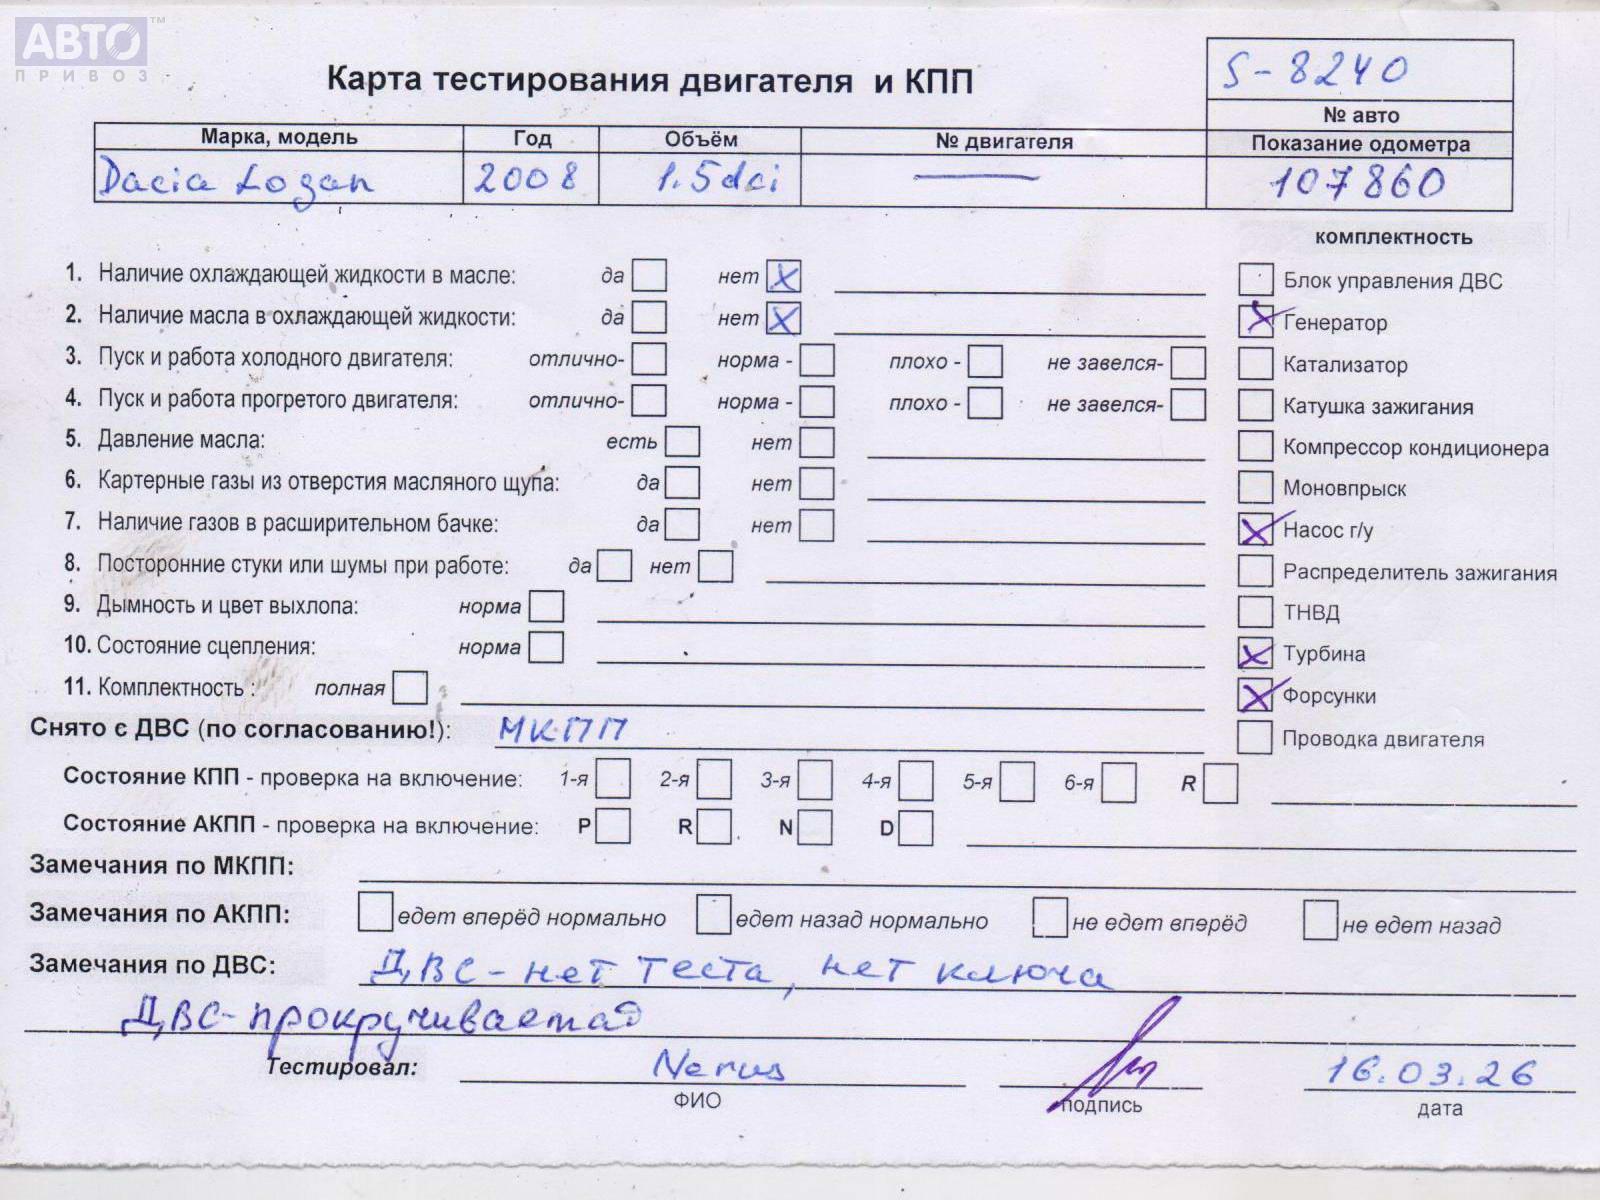 АВТО™
ПРИВОЗ
Карта тестирования двигателя и КПП
S-8240
№ авто
Марка, модель Год Объём № двигателя Показание одометра
Dacia Logan 2008 1.5dci — 107860
комплектность
1. Наличие охлаждающей жидкости в масле: да нет X
Блок управления ДВС
2. Наличие масла в охлаждающей жидкости: да нет X
X Генератор
3. Пуск и работа холодного двигателя: отлично- норма - плохо - не завелся-
Катализатор
4. Пуск и работа прогретого двигателя: отлично- норма - плохо - не завелся-
Катушка зажигания
5. Давление масла: есть нет
Компрессор кондиционера
6. Картерные газы из отверстия масляного щупа: да нет
Моновпрыск
7. Наличие газов в расширительном бачке: да нет
X Насос г/у
8. Посторонние стуки или шумы при работе: да нет
Распределитель зажигания
9. Дымность и цвет выхлопа: норма
ТНВД
10. Состояние сцепления: норма
X Турбина
11. Комплектность : полная
X Форсунки
Снято с ДВС (по согласованию!): МКПП
Проводка двигателя
Состояние КПП - проверка на включение: 1-я 2-я 3-я 4-я 5-я 6-я R
Состояние АКПП - проверка на включение: P R N D
Замечания по МКПП:
Замечания по АКПП: едет вперёд нормально едет назад нормально не едет вперёд не едет назад
Замечания по ДВС: ДВС - нет теста, нет ключа
ДВС - прокручивается
Тестировал: 16.03.26
ФИО подпись дата